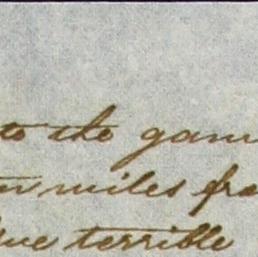 to the gam
miles fro
terrible